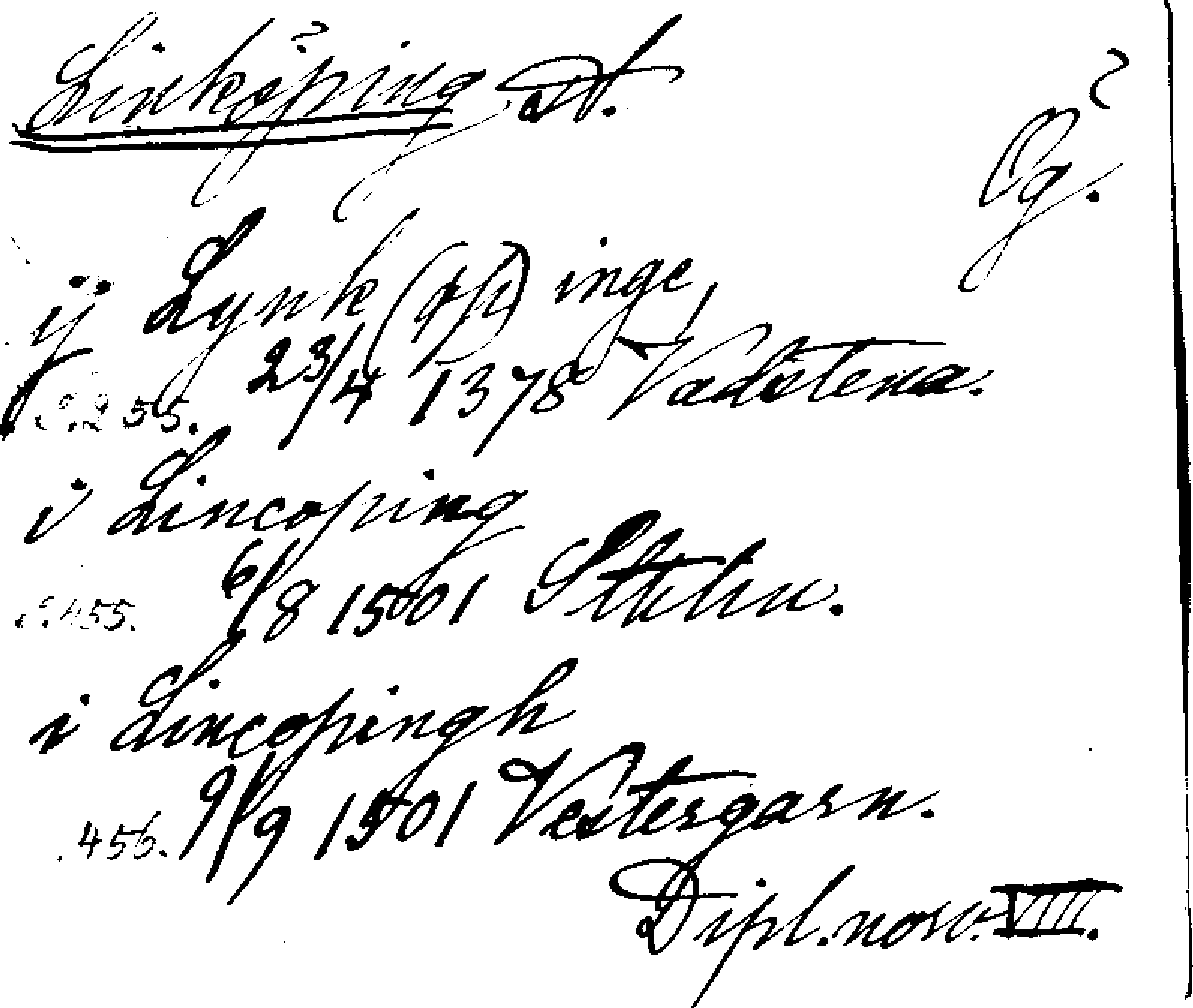 ?
Linköping St.
?
Ög.
ij Lynk(öp)inge,
S. 255. 23/4 1378 Vadstena.
i Lincoping
S. 455. 6/8 1501 Sthlm.
i Lincopingh
. 456. 9/9 1501 Vestergarn.
Dipl. norv. VIII.